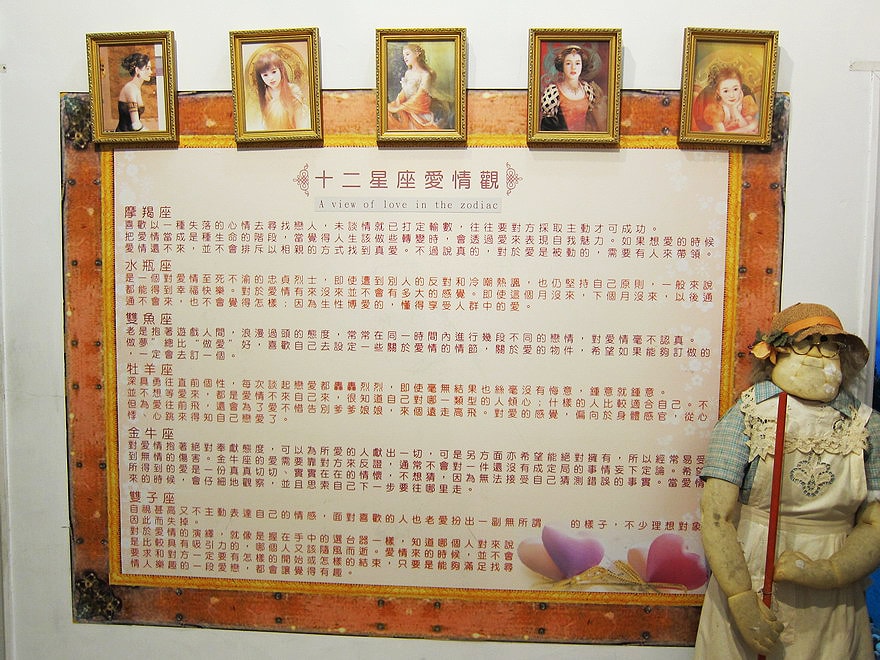 十二星座愛情觀
A view of love in the zodiac
摩羯座
喜歡以一種失落的心情去尋找戀人，未談情就已打定輸數，往往要對方採取主動才可成功。
把愛情當成是種生命的階段，當覺得人生該做些轉變時，會透過愛來表現自我魅力。如果想愛的時候
愛情還不來，並不會排斥以相親的方式找到真愛。不過說真的，對於愛是被動的，需要有人來帶領。
水瓶座
是一個對愛情至死不渝的忠貞烈士，即使遭到別人的反對和冷嘲熱諷，也仍堅持自己原則，一般來說
都能得到幸福快樂。對於愛情有來沒來並不會有多大的感覺。即使這個月沒來，下個月沒來，以後通
通不會來，也不會覺得怎樣；因為生性博愛的，懂得享受人群中的愛。
雙魚座
老是抱著遊戲人間，浪漫過頭的態度，常常在同一時間內進行幾段不同的戀情，對愛情毫不認真。
做夢”總比“做愛”好，喜歡自己去設定一些關於愛情的情節，關於愛的物件，希望如果能夠訂做的
，一定會去訂一個。
牡羊座
深具勇往直前個性，每次談起戀愛都轟轟烈烈，即使毫無結果也絲毫沒有悔意，鍾意就鍾意。
並不想等愛來，都是愛情不來自己來，很知道自己對哪一類型的人傾心；什樣的人比較適合自己。不
但為愛往前飛，還會為了愛不惜告別爹爹娘娘，來個遠走高飛。對愛的感覺，偏向於身體感官，從心
悸、心跳來得知自己戀愛了。
金牛座
對愛情抱著絕對奉獻態度，可以為所愛的人獻出一切，可是另方面亦希望能絕對擁有，所以經常易受
到無情的傷害。金牛座的愛需要靠對方來反證，通常不會對一件還沒有成定局的事情妄下定論。希望
所得到的愛是一份真真切切、實實在在的情懷，不想猜，因為無法接受自己猜測錯誤的事實。當愛情
來的時候，會仔細地觀察，並且思索自己下一步要往哪里走。
雙子座
自視甚高又不主動表達自己的情感，面對喜歡的人也老愛扮出一副無所謂 的樣子，不少理想對象
因此而失掉。
對於愛情的演繹，就像是握在手中的選台器一樣，知道哪個人對來說
是比較具有吸引力的，哪個人又該隨風而逝。愛情來的時候，並不會
要求和對方一定要有怎樣的開始或怎樣的結束，只要是能夠滿足找尋
情人樂趣的一段愛戀，都會讓覺得有趣。